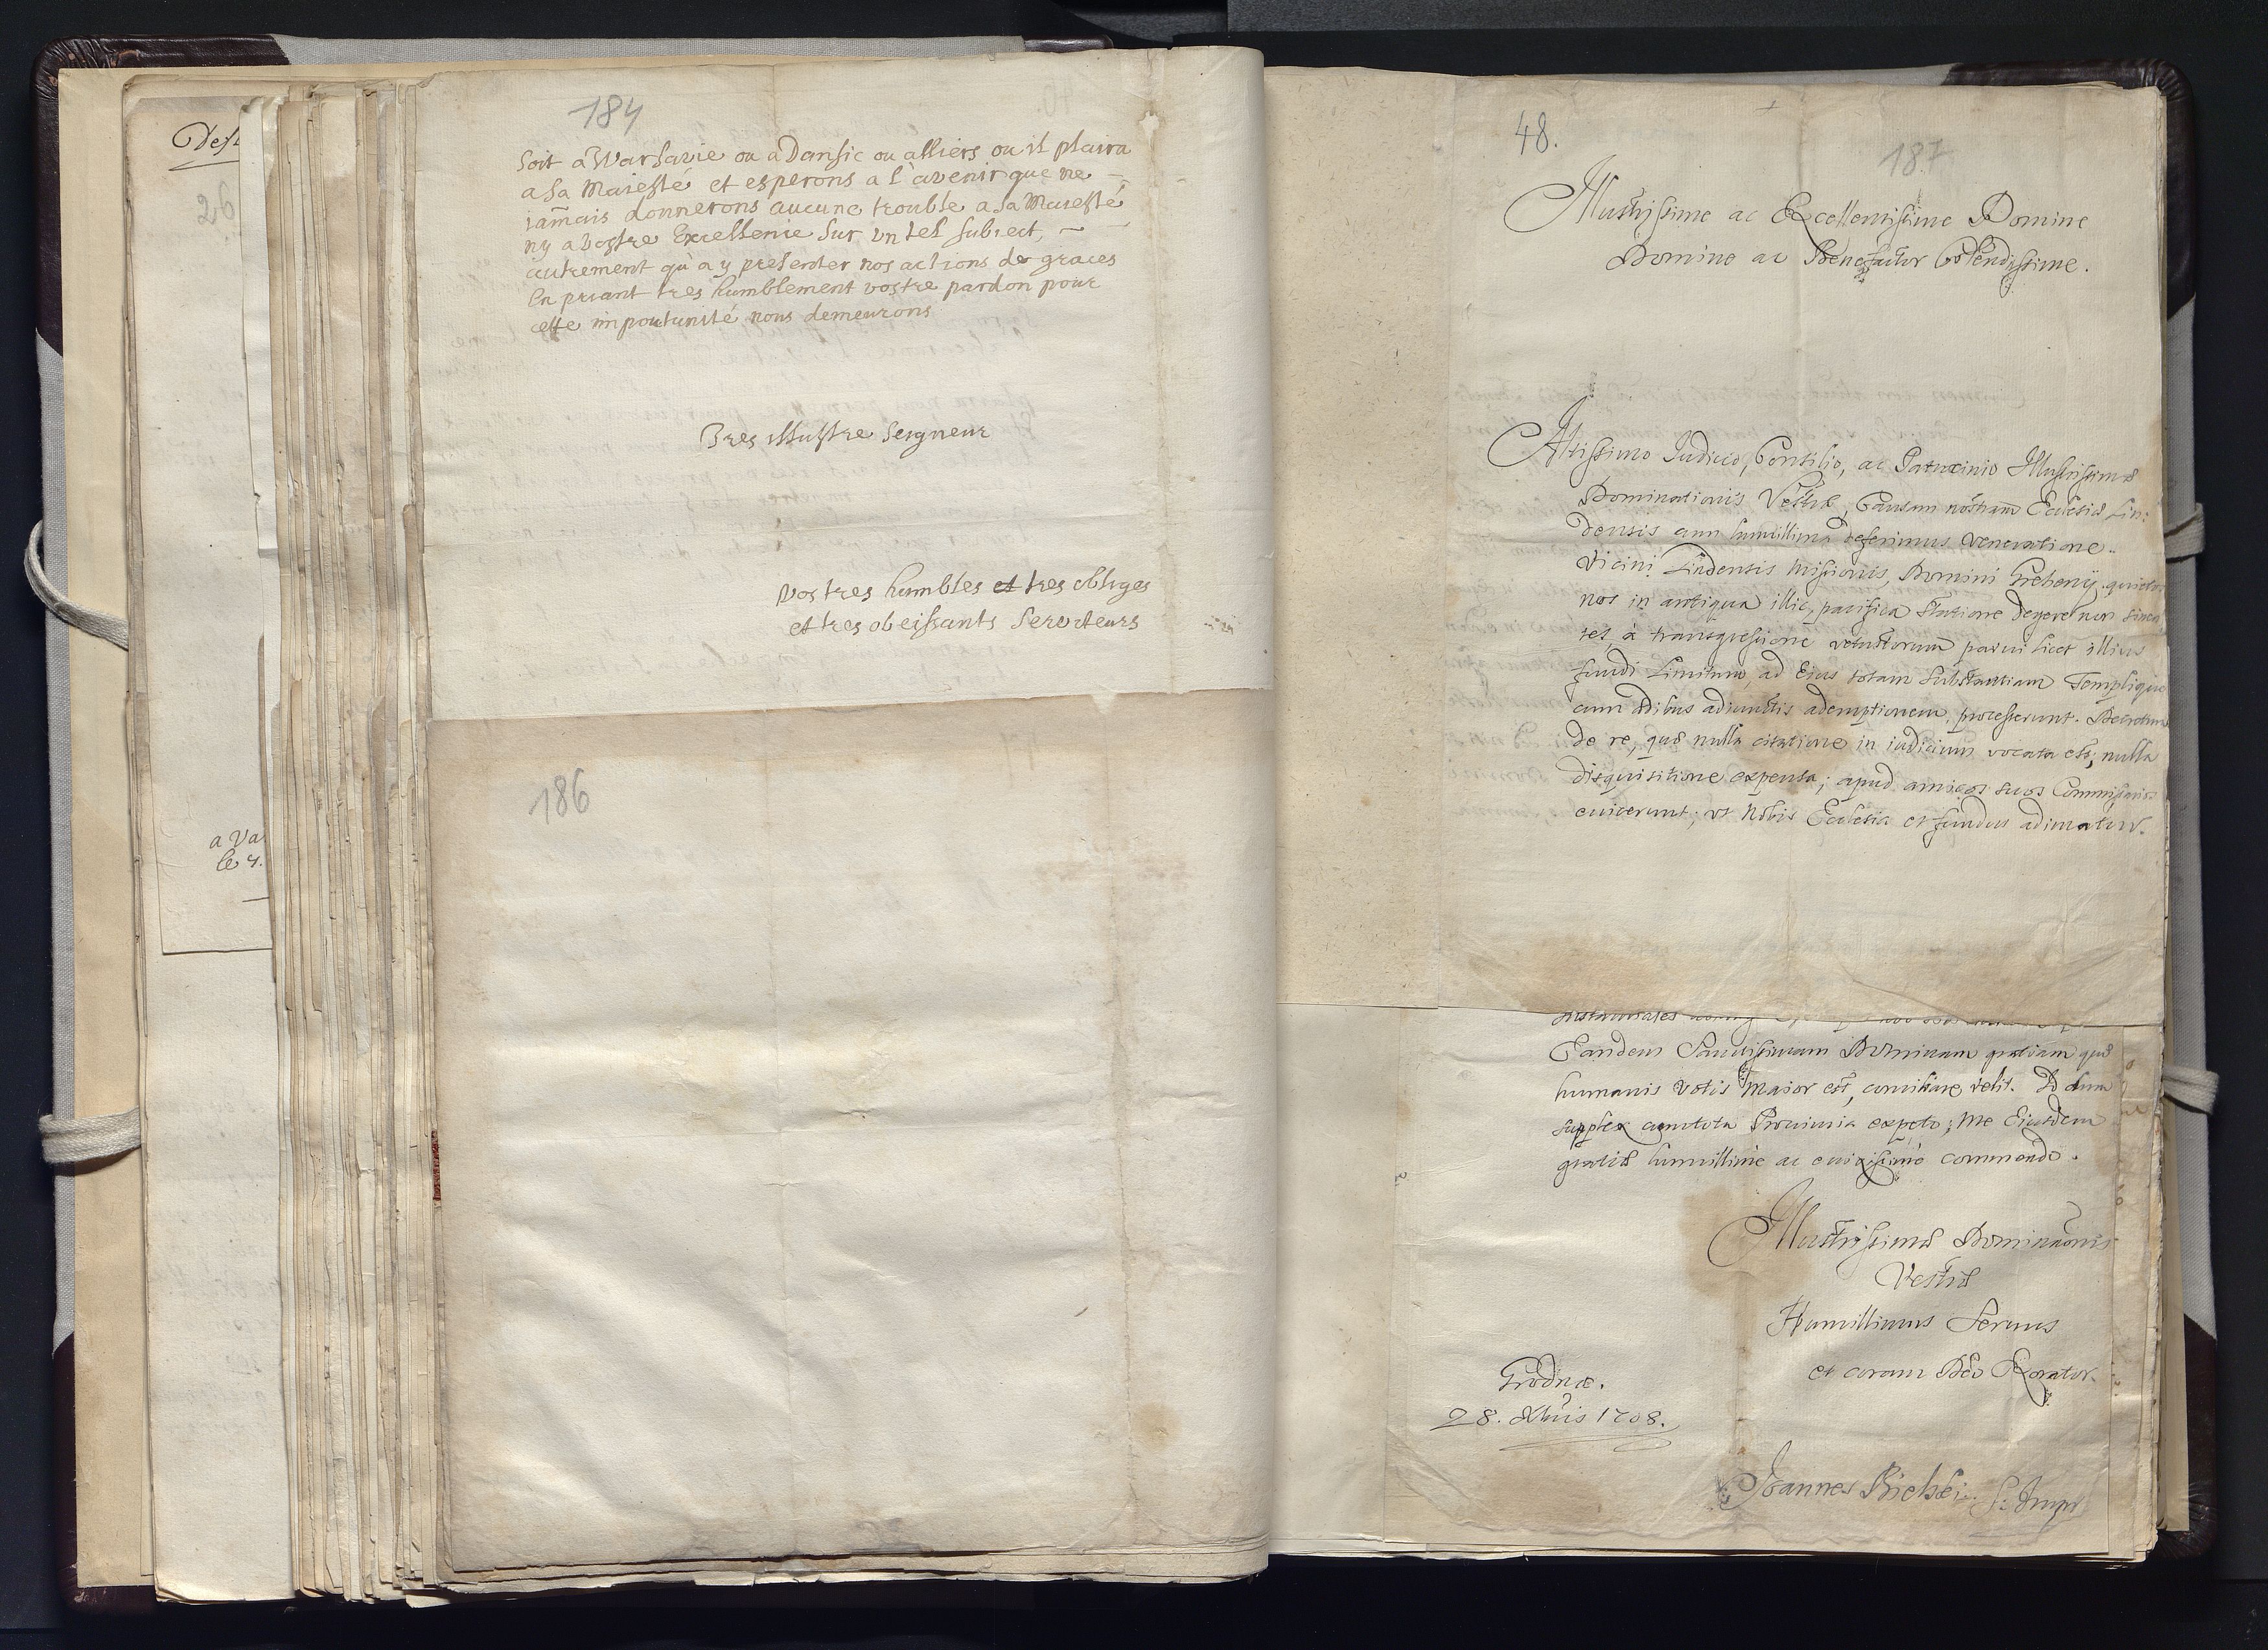 Dest
26
a Va
le 4.
184
soit a Warsavie ou a Dansic ou alliers ou il plaira
a sa Maiesté et esperons a l'avenir que ne
iam̄ais donnerons aucune trouble a sa Maiesté
ny a vostre Excellenie sur un tel subiect,
autrement qu'a y presenter nos actions de graces
En priant tres humblement vostre pardon pour
cette importunité nous demeurons
Tres illustre Seigneur
Vos tres humbles et tres obliges
et tres obeissants Serviteurs
186
48.
187
Illustrissime ac Excellentissime Domine
Domine ac Benefactor Colendissime.
Altissimo Iudicio, Consilio, ac Patrocinio Illustrissimæ
Dominationis Vestræ, Causam nostram Ecclesiæ Lin:
densis cum humillima deferimus veneratione.
Vicini Lindensis Missionis, Domini Grebeny, quietos
nos in antiqua illic, pacifica statione degere non sinen
tes, à transgressione vetustorum parui licet illius
fundi Limitum, ad Eius totam substantiam Templique
cum ædibus adiunctis ademptionem, processerunt. Decretum
de re, quæ nulla citatione in iudicium vocata est, nulla
disquisitione expensa; apud amicos suos Commissarios
euicerunt; vt Nobis Ecclesia et fundus adimatur.
Eandem Sanctissimam Dominam gratiam quæ
humanis votis maior est, conciliare velit. Id dum
supplex cum tota Prouincia expeto; me Eiusdem
gratiæ humillimè ac enixissimè commendo.
Illustrissimæ Dominaōnis
Vestræ
Humillimus Seruus
et coram Deo Exorator.
Grodnæ.
28. Xbris 1708.
Joannes Bielski S: Imp